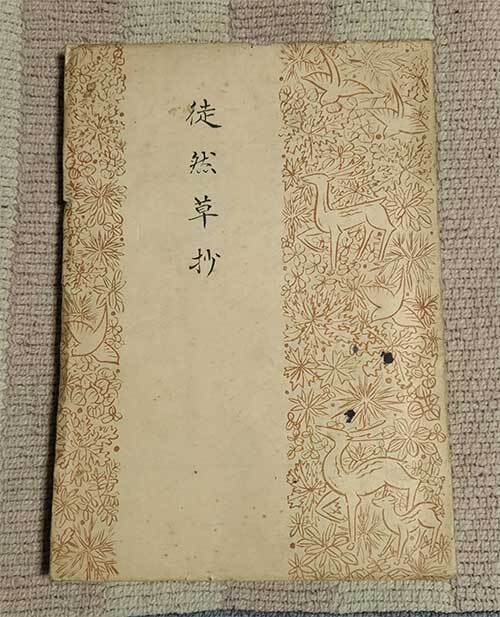 徒然草抄